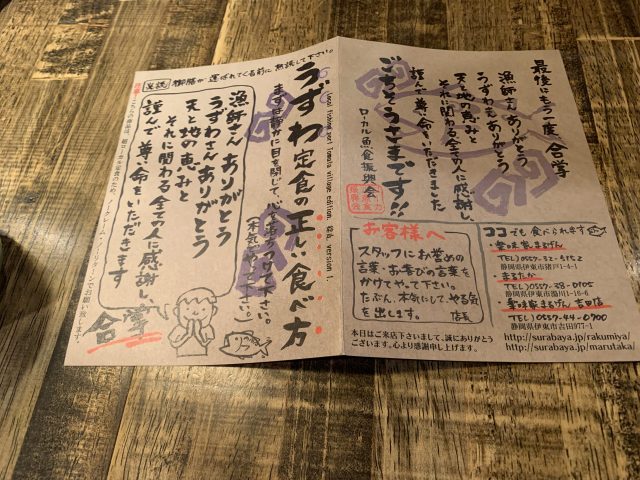 うずわ定食の正しい食べ方
(Local fishing port Tomoto village edition. 伊豆. version 1.
必読 御膳が運ばれてくる前に熟読して下さい。
まずは静かに目を閉じて、心を落ちつけて下さい。
(本気でやって下さい)
漁師さんありがとう
うずわさんありがとう
天と地の恵みと
それに関わる全ての人に感謝し、
謹んで尊い命をいただきます
合掌
最後にもう一度、合掌
漁師さんありがとう
うずわさんありがとう
天と地の恵みと
それに関わる全ての人に感謝し、
謹んで尊い命をいただきました
ごちそうさまです!!
ローカル魚食振興会
お客様へ
スタッフにお誉めの
言葉・お喜びの言葉を
かけてやって下さい。
たぶん、本気にして、やる気
を出します。
店長
本日はご来店下さいまして、誠にありがとう
ございます。心より感謝申し上げます。
ココでも食べられます
・楽味家まるげん
TEL)0557-32-5152
静岡県伊東市猪戸1-4-1
・まるたか
TEL)0557-38-0105
静岡県伊東市湯川1-16-6
・楽味家まるげん 吉田店
TEL)0557-44-0700
静岡県伊東市吉田977-1
http://surabaya.jp/rakumiya/
http://surabaya.jp/marutaka/